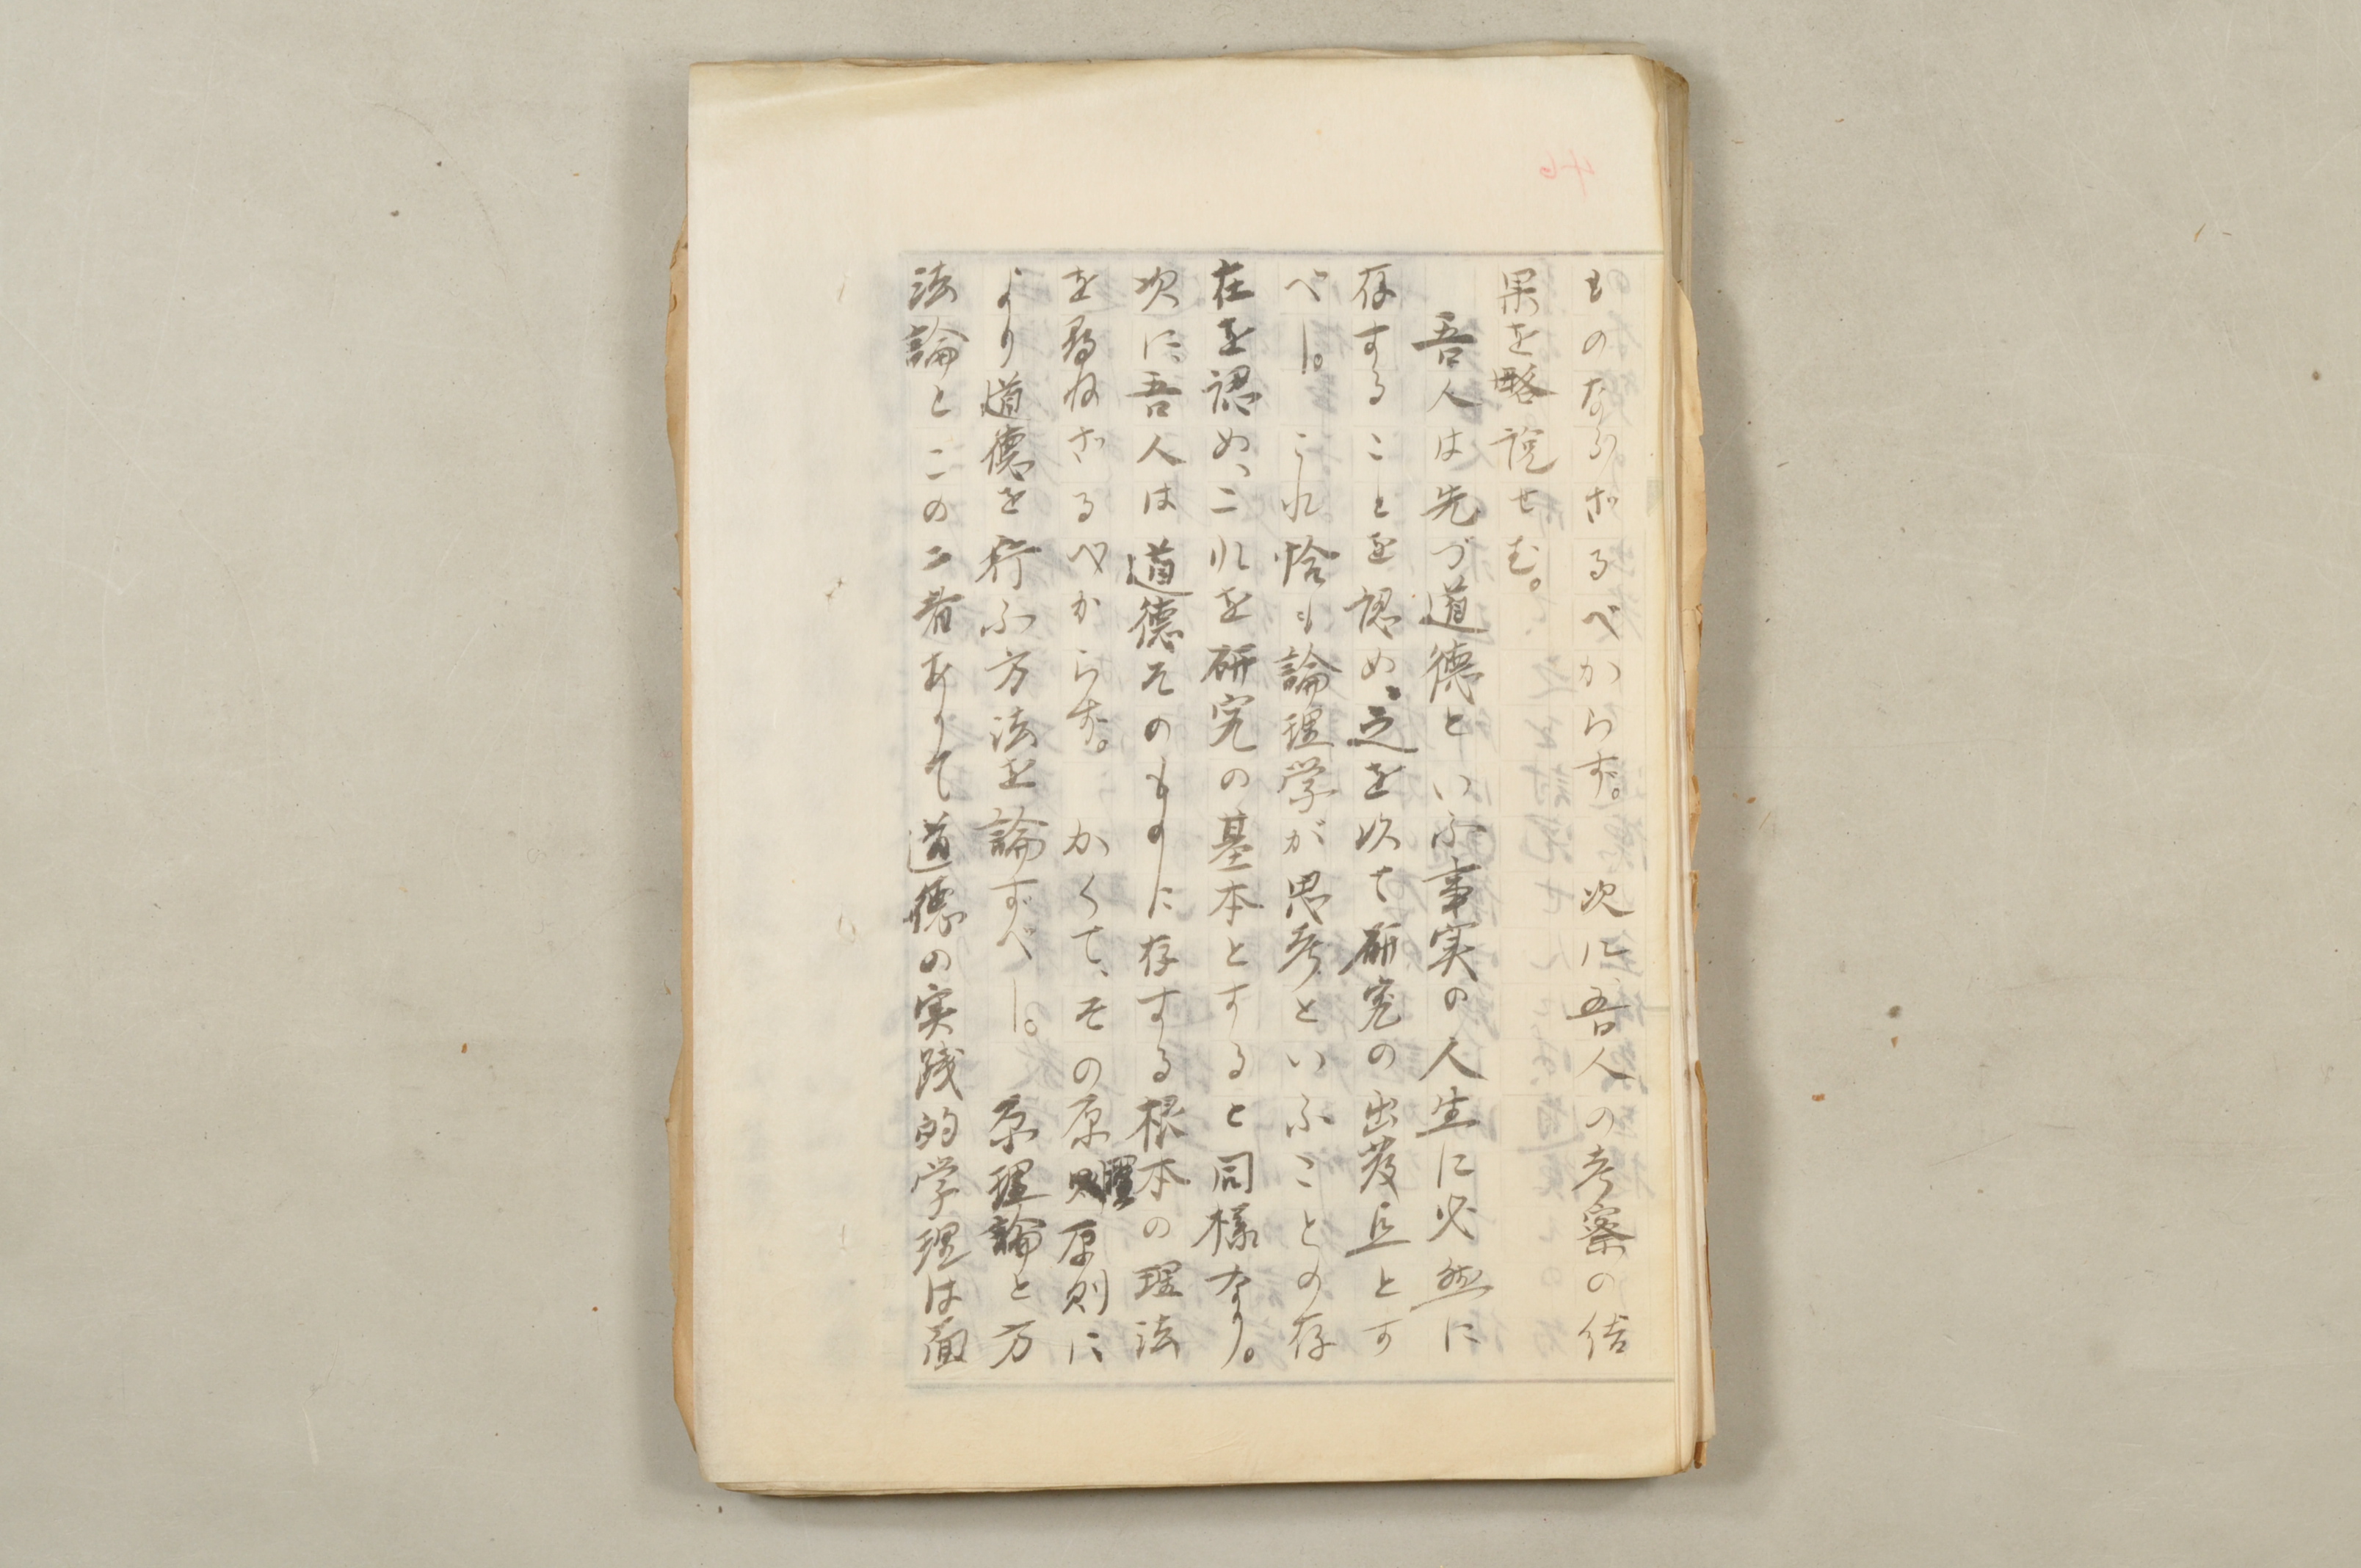 ものならざるべからず。次に、吾人の考察の結
果を略説せむ。
吾人は先づ道徳といふ事実の人生に必然に
存することを認め、之を以て研究の出発点とす
べし。これ恰も論理学が思考といふことの存
在を認め、これを研究の基本とすると同様なり。
次に、吾人は道徳そのものに存する根本の理法
を尋ねざるべからず。かくて、その原則に
より道徳を行ふ方法を論ずべし。原理論と方
法論とこの二者ありて道徳の実践的学理は